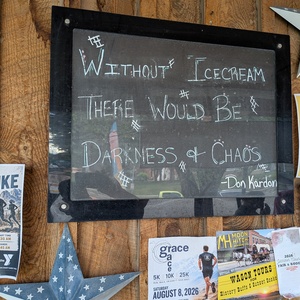 WITHOUT ICECREAM
THERE WOULD BE
DARKNESS, & CHAOS
-Don Kardon
grace
race
5K 10K 25K
SATURDAY
AUGUST 8, 2026
WAGON TOURS